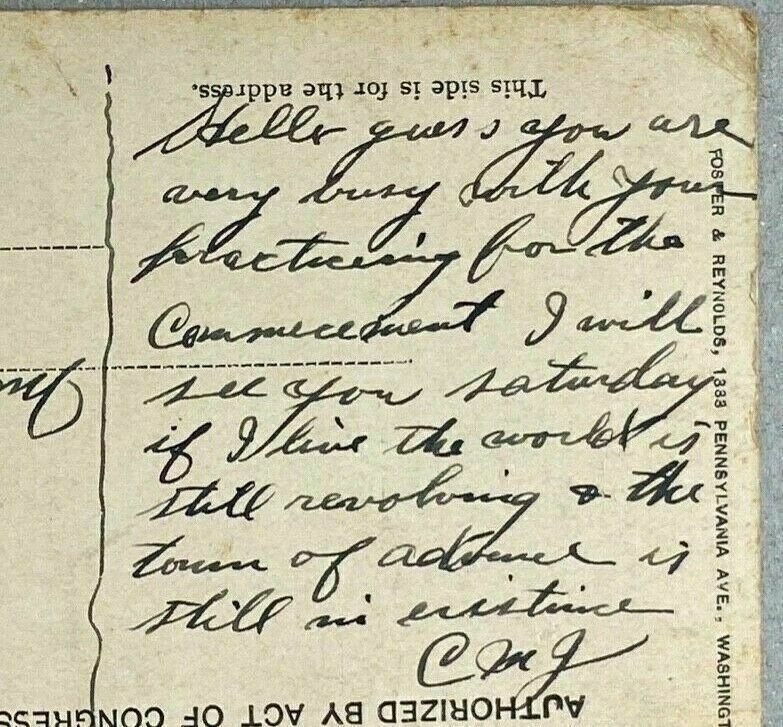 This side is for the address.
Hello guess you are
very busy with your
practiceing for the
Commecement I will
see you saturday
if I live the world is
still revolving & the
town of advance is
still in existince
CMJ
FOSTER & REYNOLDS, 1333 PENNSYLVANIA AVE., WASHINGT
AUTHORIZED BY ACT OF CONGRESS